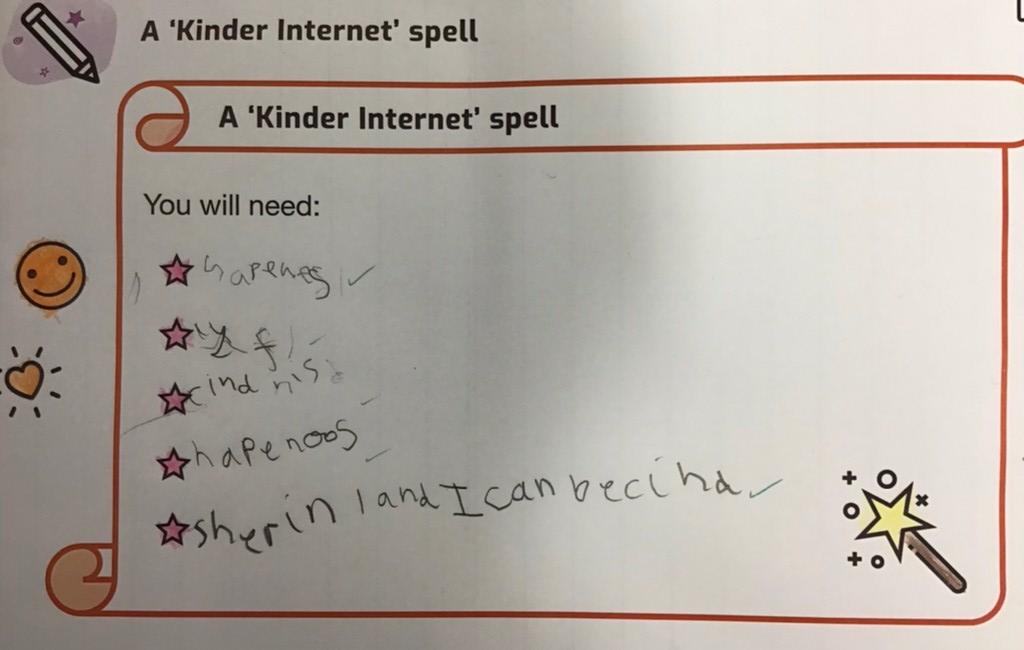 A ‘Kinder Internet’ spell
A ‘Kinder Internet’ spell
You will need:
hapenes
cind nis
hapenoos
sherin I and I can be cind